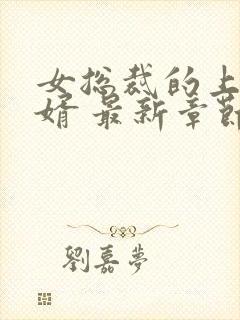 女总裁的上
婿 最新章節
劉嘉夢